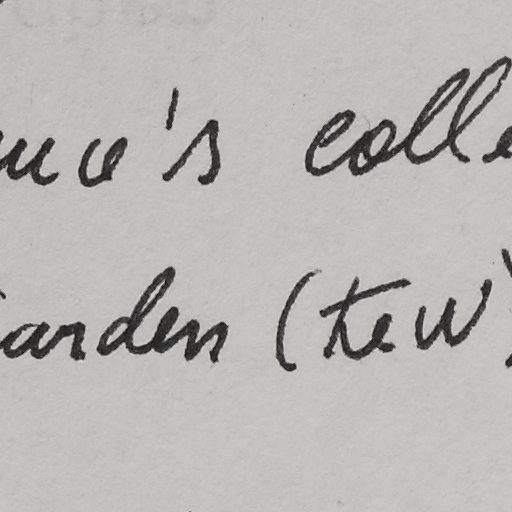 's colle
arden (Kew)